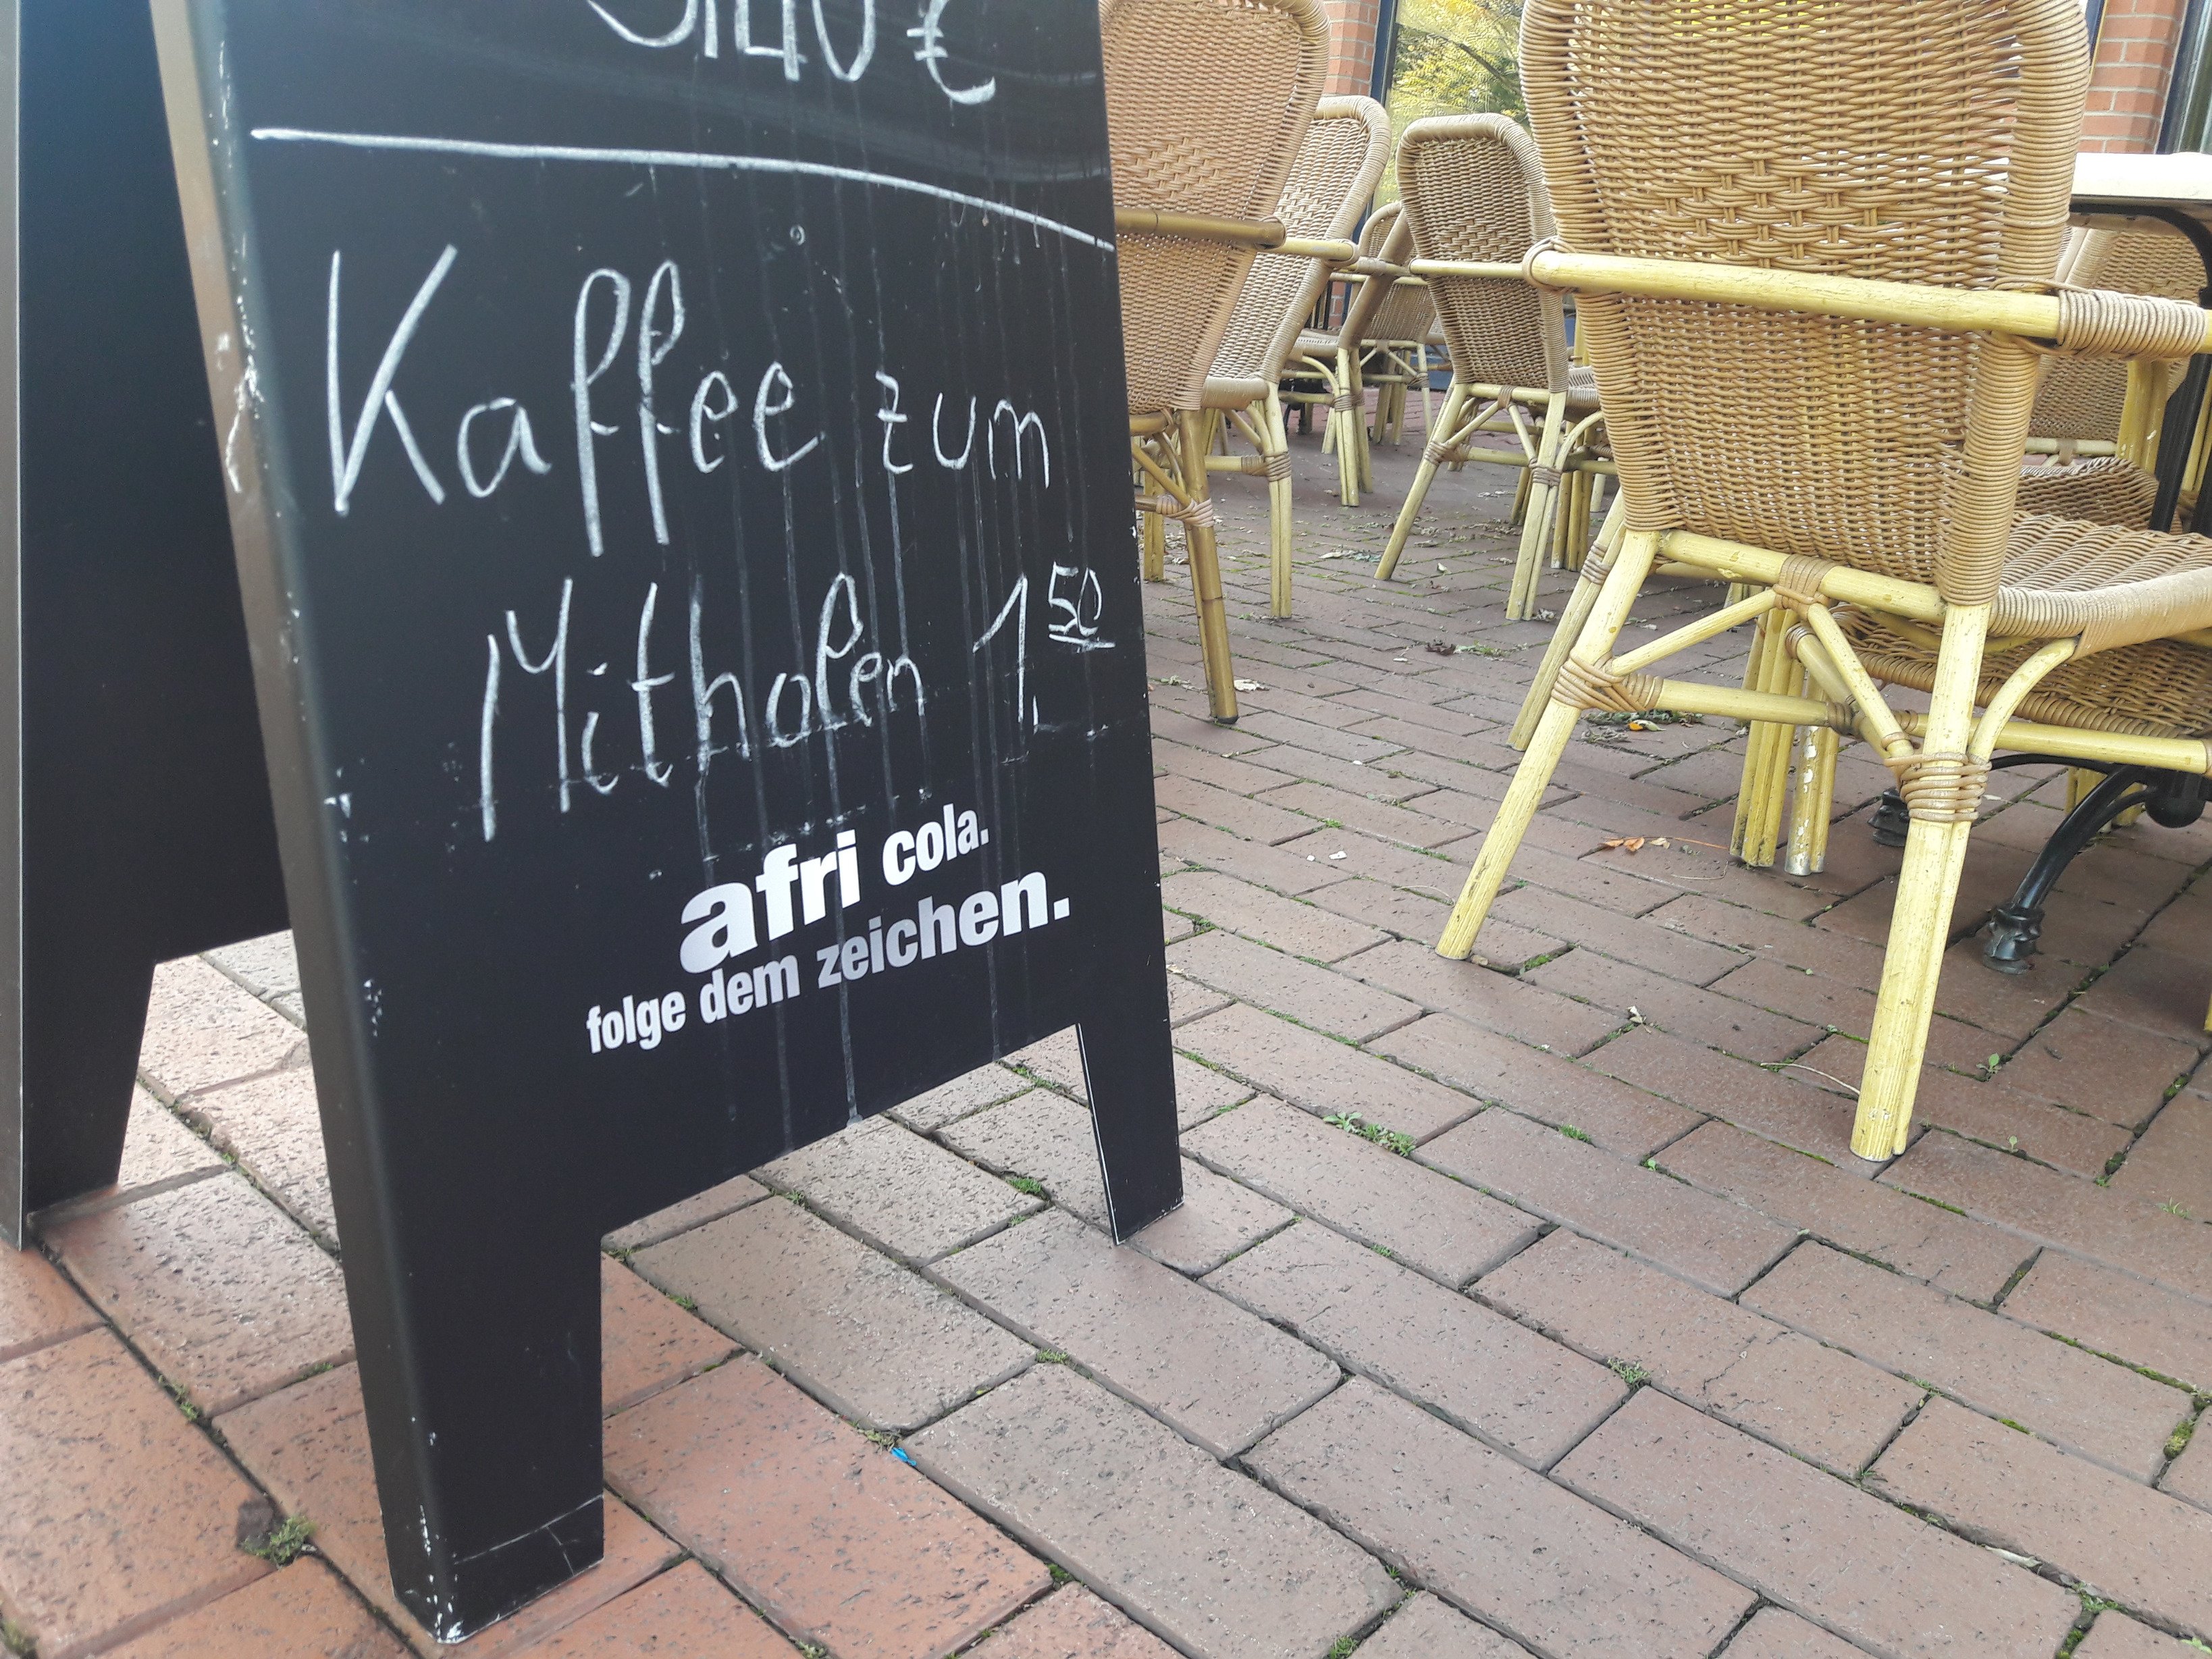 €
Kaffee zum
Mitholen 1,50
afri cola.
folge dem zeichen.